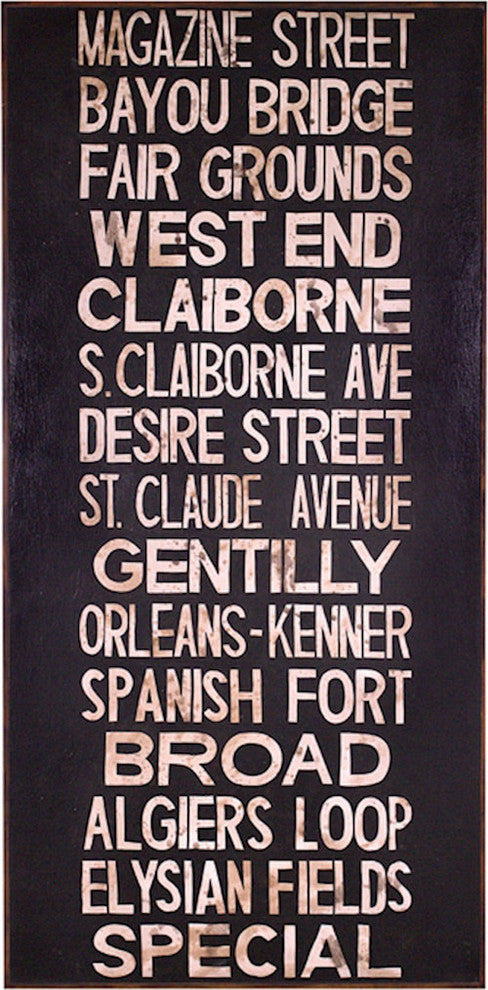 MAGAZINE STREET
BAYOU BRIDGE
FAIR GROUNDS
WEST END
CLAIBORNE
S. CLAIBORNE AVE
DESIRE STREET
ST. CLAUDE AVENUE
GENTILLY
ORLEANS-KENNER
SPANISH FORT
BROAD
ALGIERS LOOP
ELYSIAN FIELDS
SPECIAL